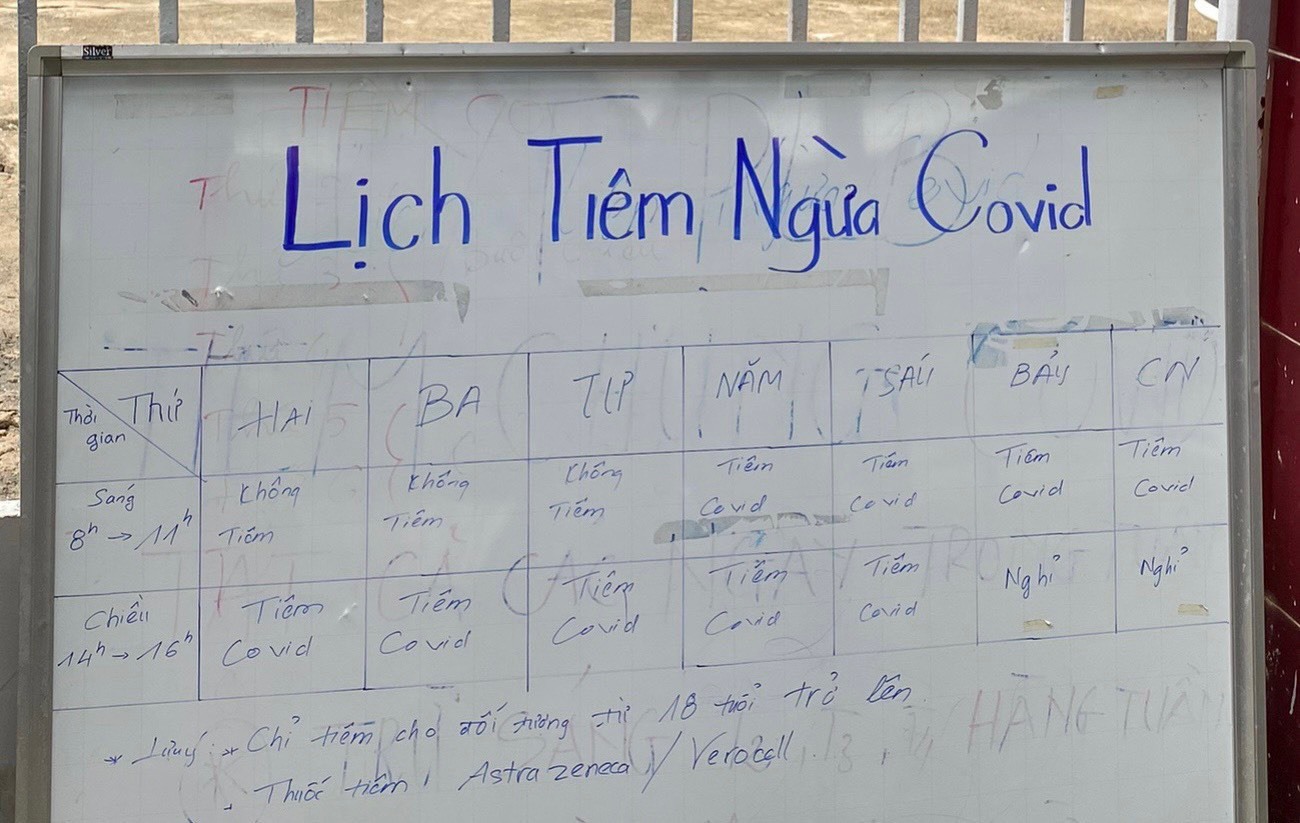 Silver
Lịch Tiêm Ngừa Covid
Thời gian Thứ HAI BA TƯ NĂM SÁU BẢY CN
Sáng 8h → 11h Không Tiêm Không Tiêm Không Tiêm Tiêm Covid Tiêm Covid Tiêm Covid Tiêm Covid
Chiều 14h → 16h Tiêm Covid Tiêm Covid Tiêm Covid Tiêm Covid Tiêm Covid Nghỉ Nghỉ
* Lưu ý: * Chỉ tiêm cho đối tượng từ 18 tuổi trở lên
. Thuốc tiêm: Astrazeneca / Verocell.